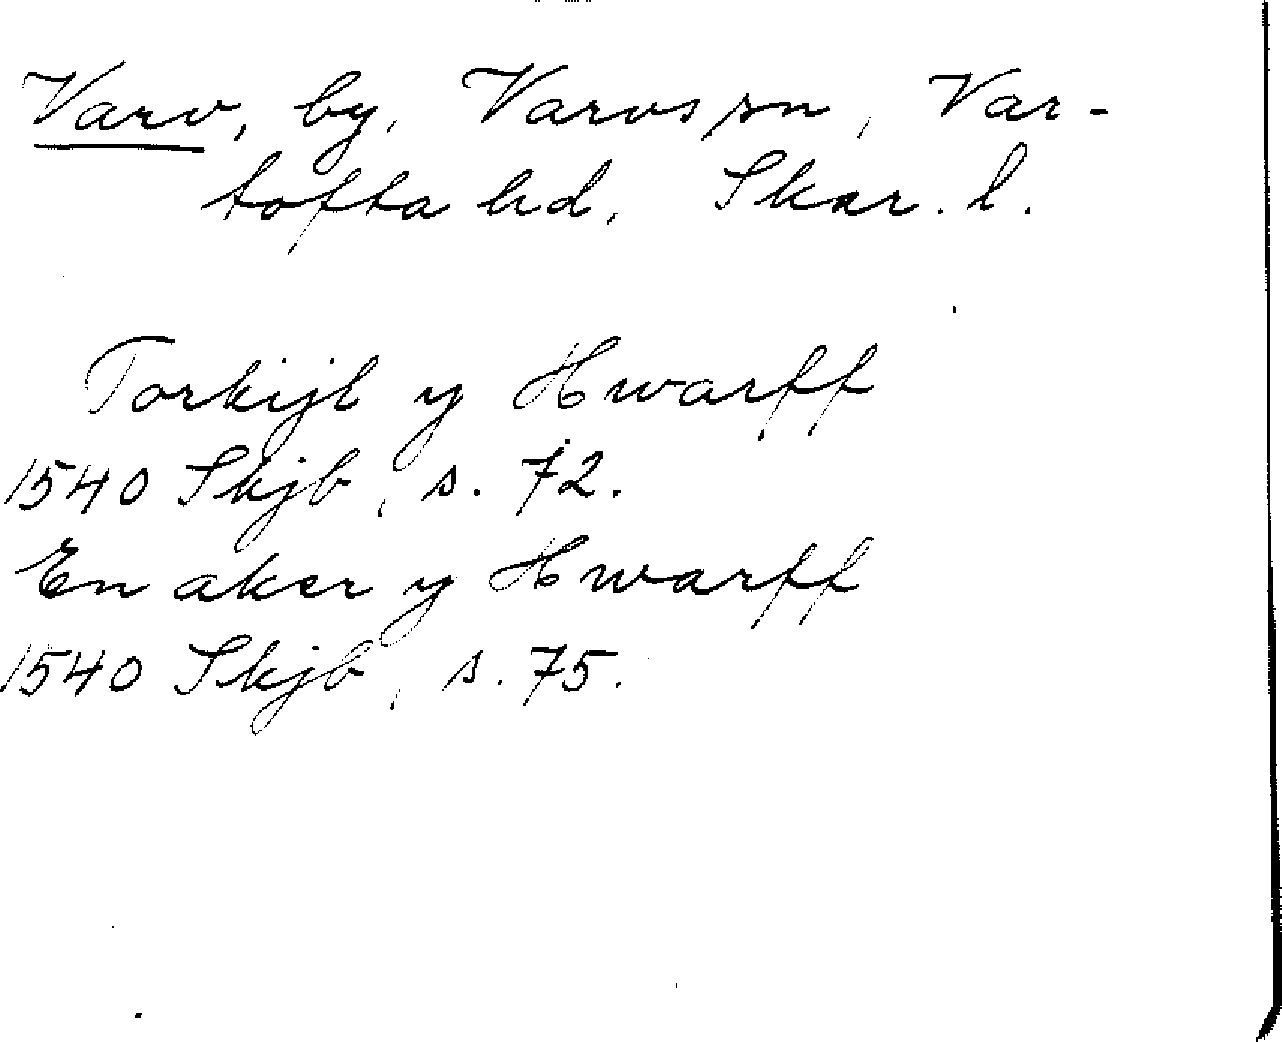 Varv, by, Varvs sn, Var-
tofta hd, Skar. l.
Torkijl y Hwarff
1540 Skjb, s. 72.
En aker y Hwarff
1540 Skjb, s. 75.